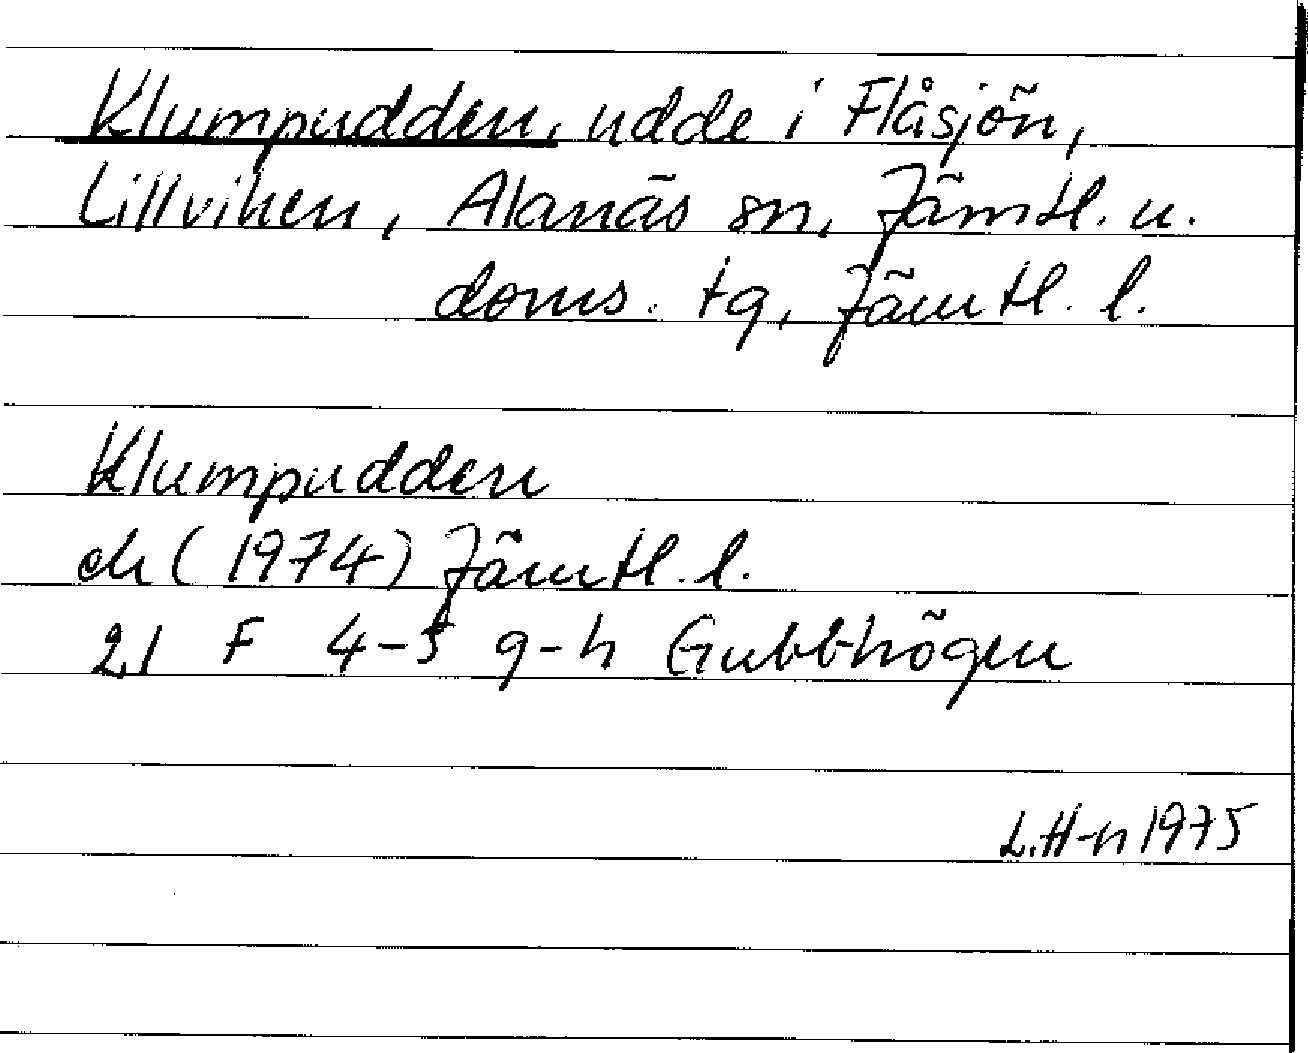 Klumpudden, udde i Flåsjön,
Lillviken, Alanäs sn, Jämtl. n.
doms. tg, Jämtl. l.
Klumpudden
ek (1974) Jämtl. l.
21 F 4-5 g-h Gubbhögen
L.H-n 1975